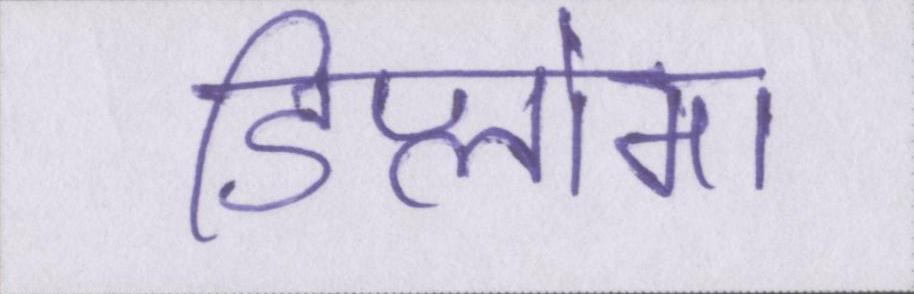 डिप्लोमा